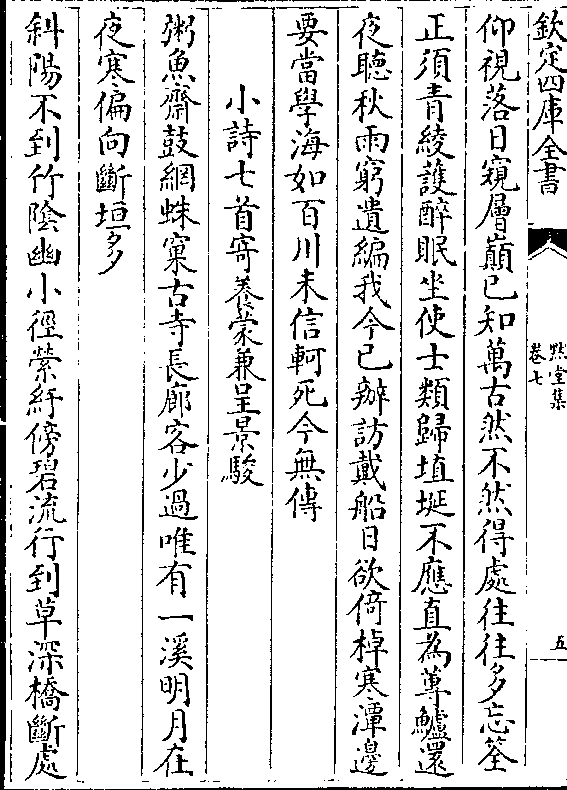 欽定四庫全書
黙堂集
卷七
五
仰視落日窺層巔已知萬古然不然得處往往多忘筌
正須青綾護醉眠坐使士類歸埴埏不應直為蓴鱸還
夜聽秋雨窮遺編我今已辦訪戴船日欲倚棹寒潭邊
要當學海如百川未信軻死今無傳
小詩七首寄養蒙兼呈景駿
粥魚齋鼓網蛛窠古寺長廊客少過唯有一溪明月在
夜寒偏向斷垣多
斜陽不到竹陰幽小徑縈紆傍碧流行到草深橋斷處